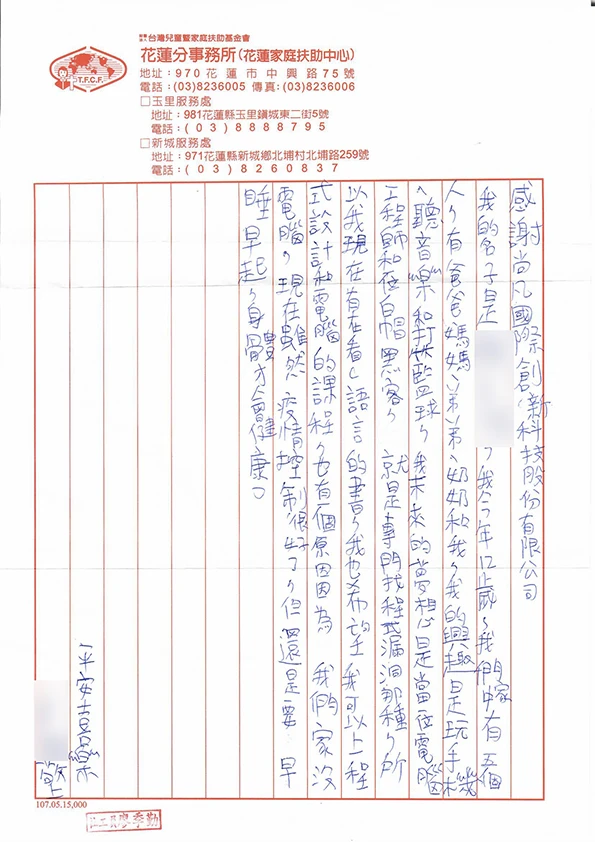 財團法人台灣兒童暨家庭扶助基金會
花蓮分事務所(花蓮家庭扶助中心)
地址：970花蓮市中興路75號
電話：(03)8236005 傳真：(03)8236006
□玉里服務處
地址：981花蓮縣玉里鎮城東二街5號
電話：(03)8888795
□新城服務處
地址：971花蓮縣新城鄉北埔村北埔路259號
電話：(03)8260837
T.F.C.F.
感謝尚凡國際創新科技股份有限公司
我的名子是，我今年12歲，我們家中有五個
人，有爸爸、媽媽、弟弟、奶奶和我，我的興趣是玩手機
、聽音樂和打籃球，我未來的夢想是當位電腦
工程師和位白帽黑客，就是專門找程式漏洞那種，所
以我現在有在看C語言的書，我也希望我可以上程
式設計和電腦的課程，也有個原因因為 我們家沒
電腦，現在雖然疫情控制很好了，但還是要 早
睡早起，身體才會健康。
平安喜樂
敬上
107.05.15,000
社工員廖季勤